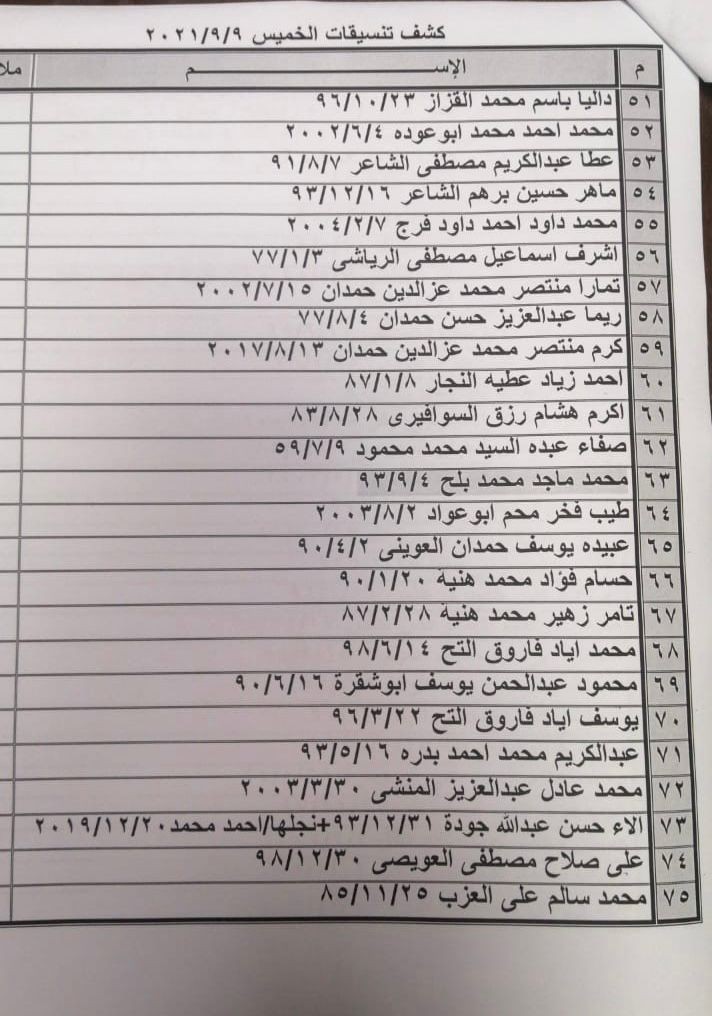 كشف تنسيقات الخميس ٢٠٢١/٩/٩
م الإســــــــــم ملا
٥١ داليا باسم محمد القزاز ٩٦/١٠/٢٣
٥٢ محمد احمد محمد ابوعوده ٢٠٠٢/٦/٤
٥٣ عطا عبدالكريم مصطفى الشاعر ٩١/٨/٧
٥٤ ماهر حسين برهم الشاعر ٩٣/١٢/١٦
٥٥ محمد داود احمد داود فرج ٢٠٠٤/٢/٧
٥٦ اشرف اسماعيل مصطفى الرياشى ٧٧/١/٣
٥٧ تمارا منتصر محمد عزالدين حمدان ٢٠٠٢/٧/١٥
٥٨ ريما عبدالعزيز حسن حمدان ٧٧/٨/٤
٥٩ كرم منتصر محمد عزالدين حمدان ٢٠١٧/٨/١٣
٦٠ احمد زياد عطيه النجار ٨٧/١/٨
٦١ اكرم هشام رزق السوافيرى ٨٣/٨/٢٨
٦٢ صفاء عبده السيد محمد محمود ٥٩/٧/٩
٦٣ محمد ماجد محمد بلح ٩٣/٩/٤
٦٤ طيب فخر محم ابوعواد ٢٠٠٣/٨/٢
٦٥ عبيده يوسف حمدان العوينى ٩٠/٤/٢
٦٦ حسام فؤاد محمد هنية ٩٠/١/٢٠
٦٧ تامر زهير محمد هنية ٨٧/٢/٢٨
٦٨ محمد اياد فاروق التح ٩٨/٦/١٤
٦٩ محمود عبدالحمن يوسف ابوشقرة ٩٠/٦/١٦
٧٠ يوسف اياد فاروق التح ٩٦/٣/٢٢
٧١ عبدالكريم محمد احمد بدره ٩٣/٥/١٦
٧٢ محمد عادل عبدالعزيز المنشى ٢٠٠٣/٣/٣٠
٧٣ الاء حسن عبدالله جودة ٩٣/١٢/٣١+نجلها/احمد محمد٢٠١٩/١٢/٢٠
٧٤ على صلاح مصطفى العويصى ٩٨/١٢/٣٠
٧٥ محمد سالم على العزب ٨٥/١١/٢٥